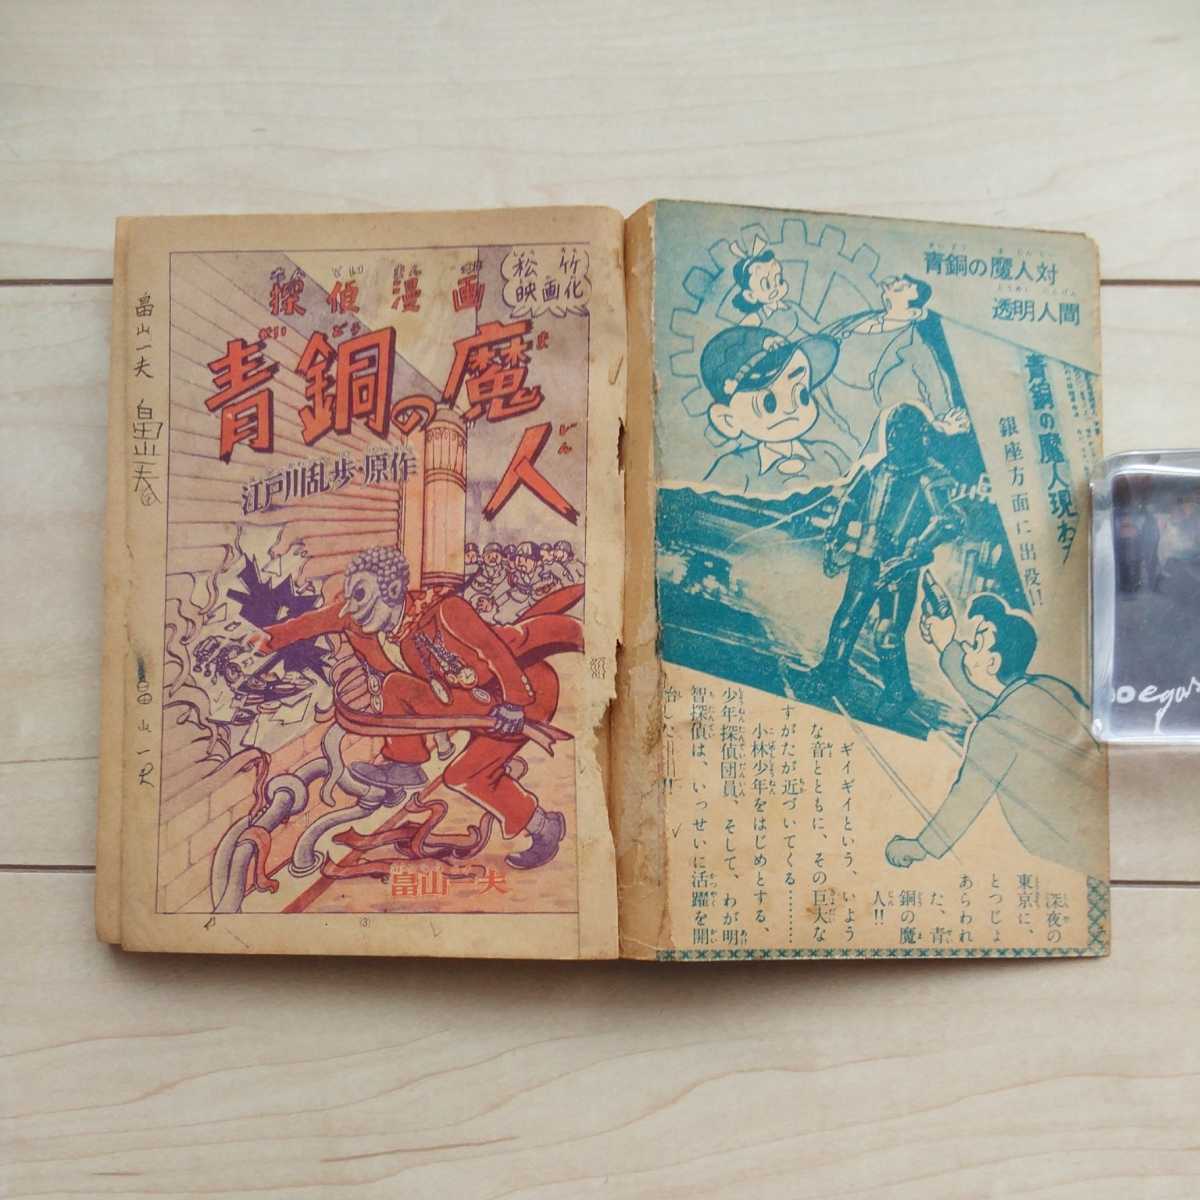 青銅の魔人対
透明人間
青銅の魔人現わる
銀座方面に出没!!
深夜の
東京に、
とつじょ
あらわれ
た、青
銅の魔
人!!
ギイギイという、いよう
な音とともに、その巨大な
すがたが近づいてくる………
小林少年をはじめとする、
少年探偵団員、そして、わが明
智探偵は、いっせいに活躍を開
始した!!
松竹
映画化
探偵漫画
青銅の魔人
江戸川乱歩・原作
畠山一夫
(3)
畠山一夫
畠山一夫
oegar